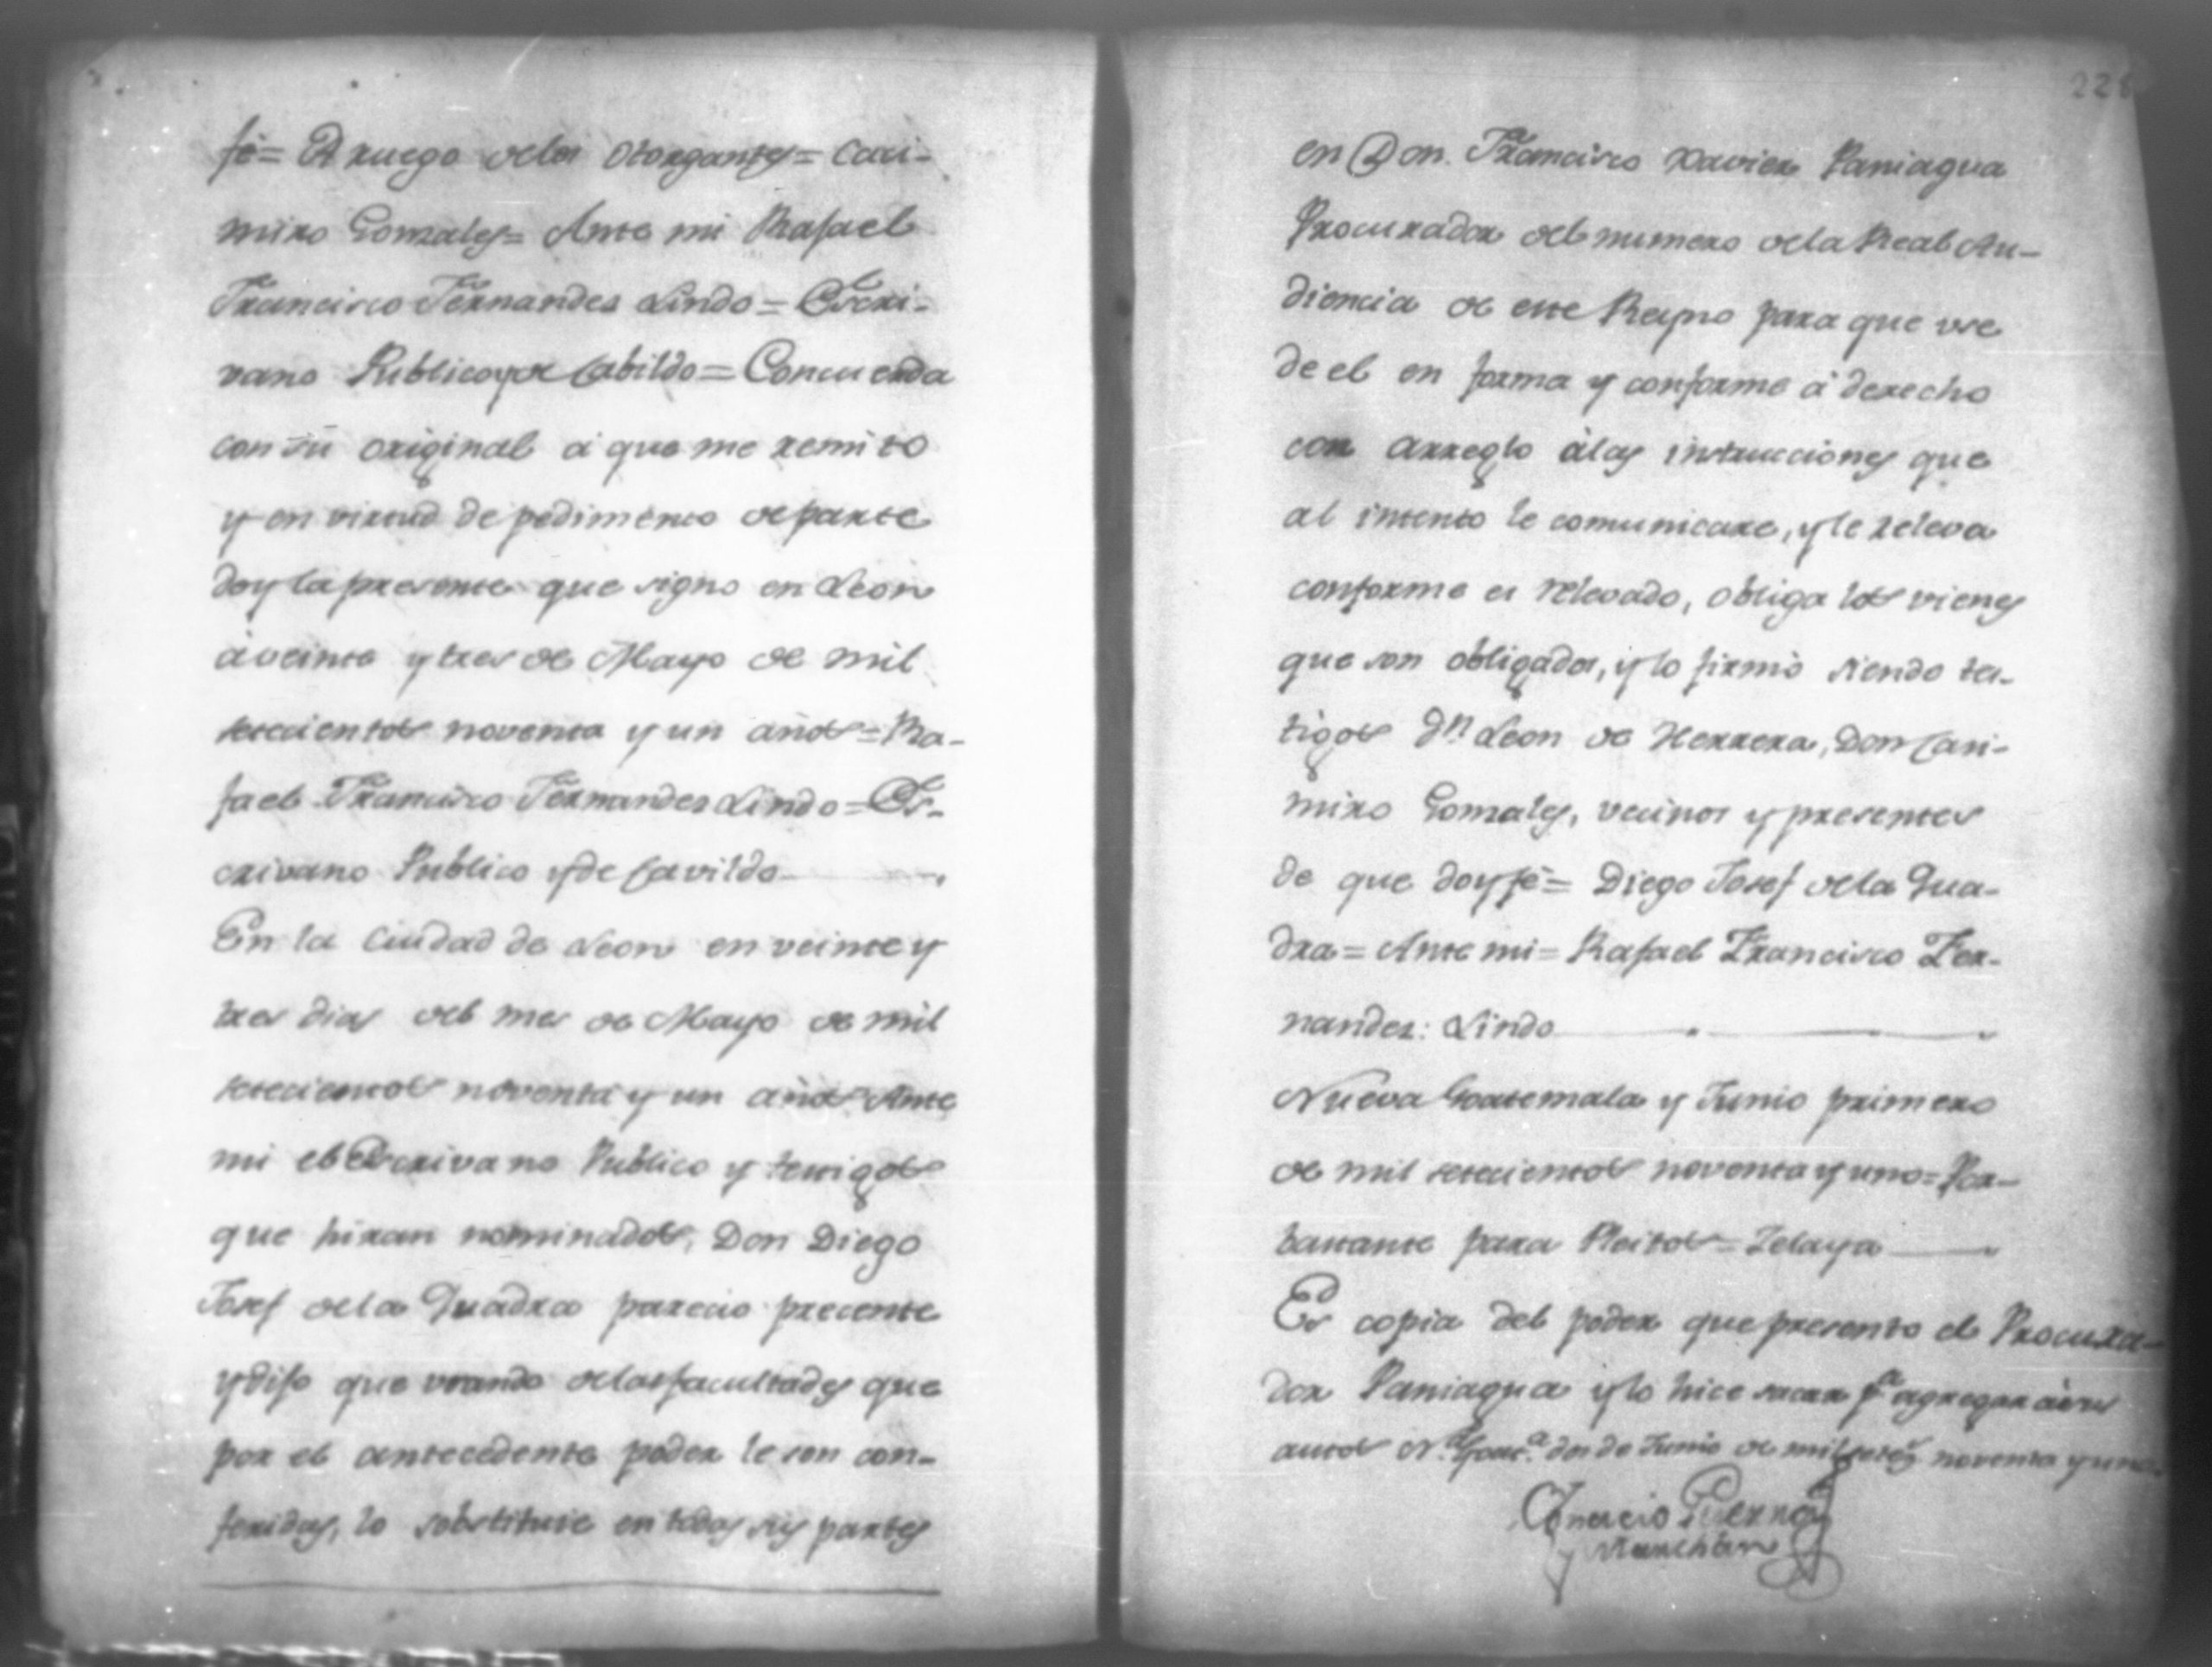 fé= A ruego delos Otorgantes= Casi-
miro Gonzales= Ante mi Rafael
Francisco Fernandes Lindo= Escri-
vano Publico y de Cabildo= Concuerda
con su original á que me remito
y en virtud de pedimento de parte
doy la presente que signo en Leon
á veinte y tres de Mayo de mil
setecientos noventa y un años= Ra-
fael Francisco Fernandes Lindo= Es-
crivano Publico y de Cavildo
En la Ciudad de Leon en veinte y
tres dias del mes de Mayo de mil
setecientos noventa y un años Ante
mi el Escrivano Publico y testigos
que hiran nominados, Don Diego
Josef dela Quadra parecio precente
y dijo que usando delas facultades que
por el antecedente poder le son con-
feridas, lo sobstituie en todas sus partes
22
en Don Francisco Xavier Paniagua
Procurador del numero dela Real Au-
diencia de este Reyno para que use
de el en forma y conforme á derecho
con arreglo álas instrucciones que
al intento le comunicare, y le releva
conforme es relevado, obliga los vienes
que son obligados, y lo firmó siendo tes-
tigos Dn Leon de Herrera, Don Casi-
miro Gonzales, vecinos y presentes
de que doy fé= Diego Josef dela Qua-
dra= Ante mi= Rafael Francisco Fer-
nandes: Lindo
Nueva Guatemala y Junio primero
de mil setecientos noventa y uno= Per-
bastante para Pleitos= Zelaya
Es copia del poder que presento el Procura-
dor Paniagua y lo hice sacar pa agregar á sus
autos Na Guata dos de Junio de mil setecs noventa y uno
Ignacio Guerra
y Marchan